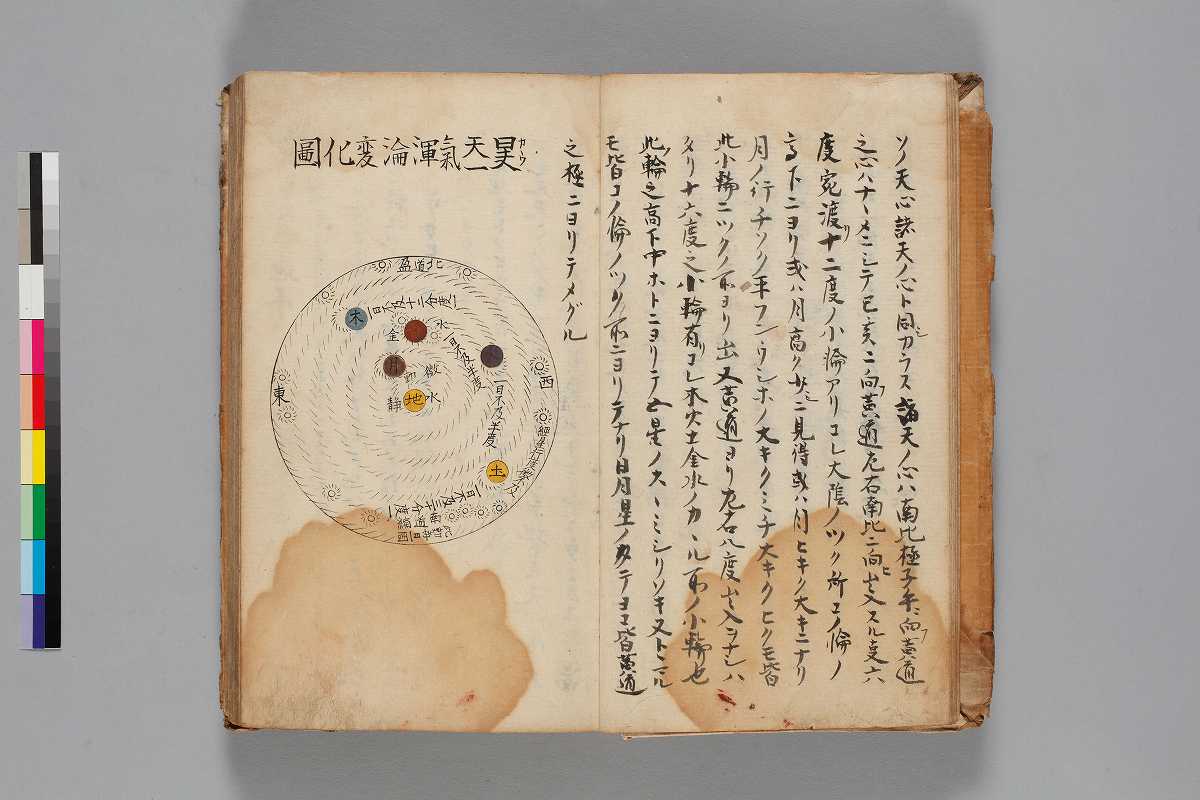 ソノ天心諸天ノ心ト同カラス諸天ノ心ハ南北極子午ニ向フ黄道
之心ハナヽメニシテ巳亥ニ向フ黄道左右南北ニ向ヒ出入スル支六
度宛渡リ十二度ノ小倫アリコレ大陰ノツク所コノ倫ノ
高下ニヨリ或ハ月高ク少ニ見得或ハ月ヒキク大キニナリ
月ノ行チソク平ランシホノ大キクミチ大キクヒクモ皆
此小輪ニツクノ所ヨリ出又黄道ヨリ左右八度出入ヲナシハ
タリ十六度之小輪有リコレ木火土金水ノカヽル所ノ小輪也
此輪之高下中ホトニヨリテ七星ノスヽミシリソキ又トヽマル
モ皆コノ倫ノツク所ニヨリテナリ日月星ノタテヨコ皆黄道
之極ニヨリテメグル
昊天一氣渾淪変化圖
カウ
北道盈
西
東
木
金
水
月
火
地
水
静
土
一日不及十二分度一
一日不及半度
一日不及半度